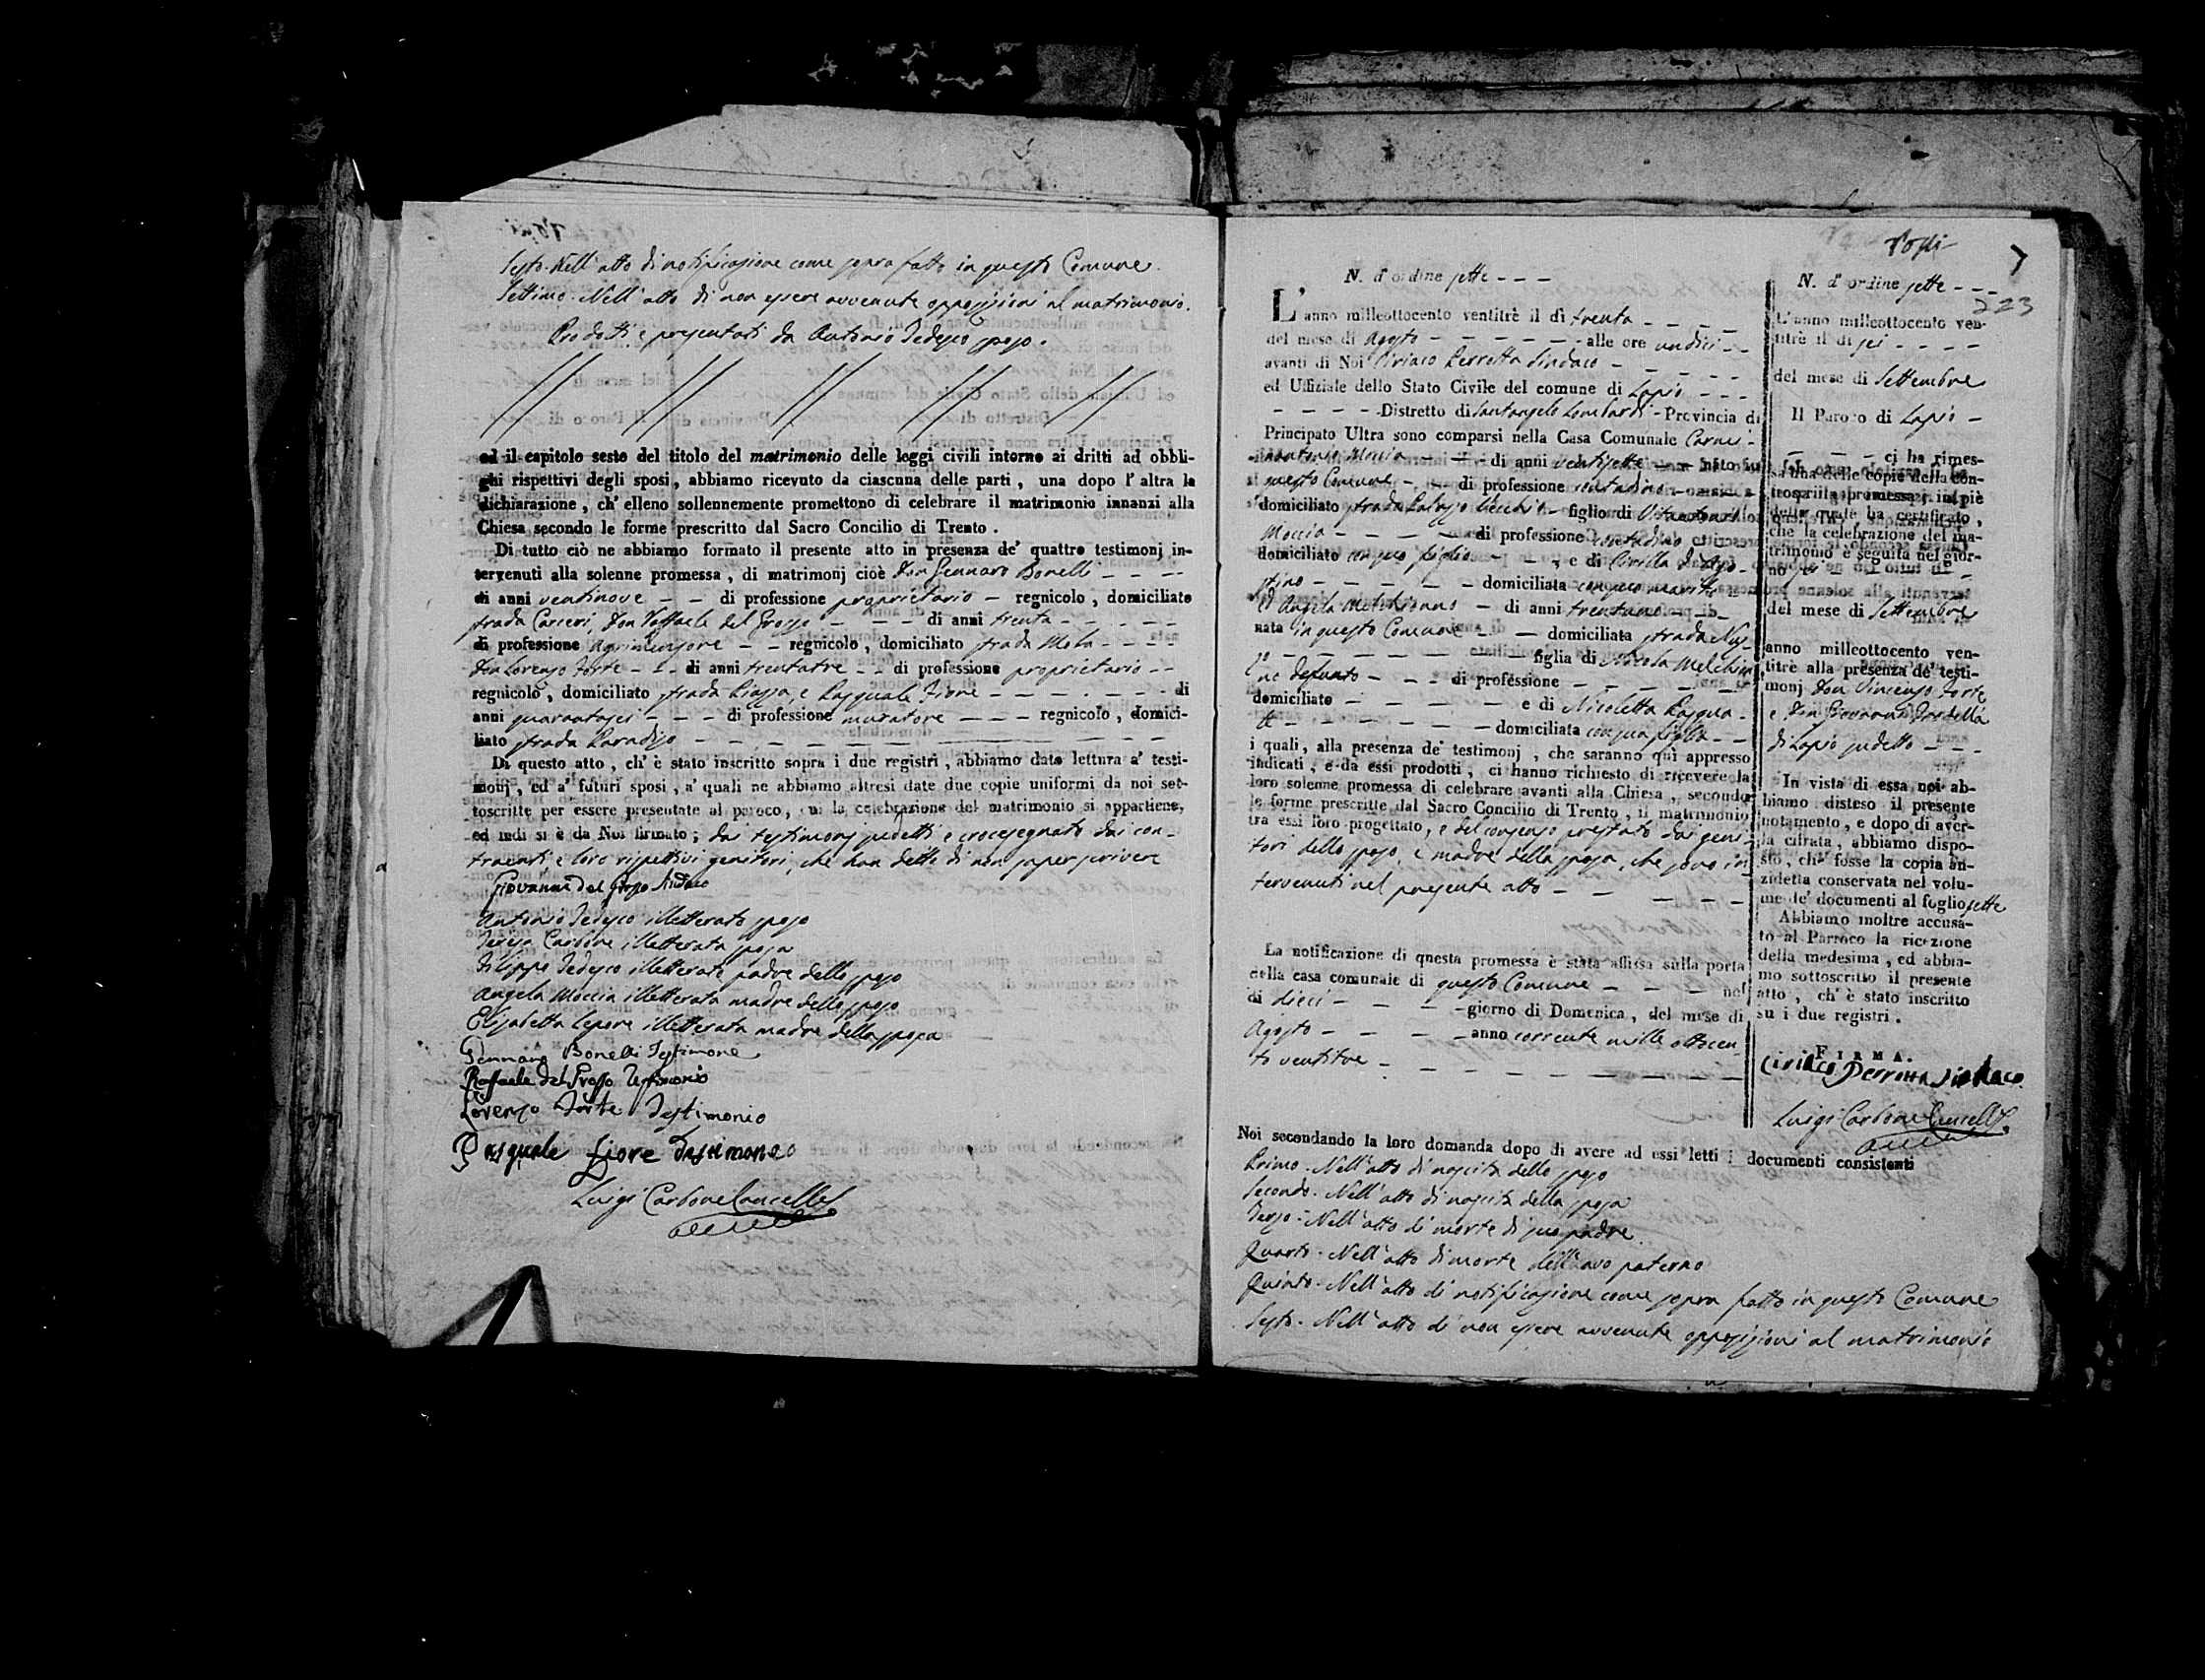 Sesto. Nell' atto di notificazione come sopra fatto in questo Comune.
Settimo. Nell' atto di non essere avvenute opposizioni al matrimonio.
Prodotti e presentati da Antonio Tedesco sposo.
ed il capitolo sesto del titolo del matrimonio delle leggi civili intorno ai dritti ad obbli-
ghi rispettivi degli sposi, abbiamo ricevuto da ciascuna delle parti, una dopo l' altra la
dichiarazione, ch' elleno sollennemente promettono di celebrare il matrimonio innanzi alla
Chiesa secondo le forme prescritto dal Sacro Concilio di Trento.
Di tutto ciò ne abbiamo formato il presente atto in presenza de' quattro testimonj in-
tervenuti alla solenne promessa, di matrimonj cioè Don Gennaro Bonelli
di anni ventinove di professione proprietario regnicolo, domiciliato
strada Carceri, Don Raffaele del Grosso di anni trenta
di professione Agrimensore regnicolo, domiciliato strada Mela
Don Lorenzo Forte di anni trentatre di professione proprietario
regnicolo, domiciliato strada Piazza, e Pasquale Fiore di
anni quarantasei di professione muratore regnicolo, domici-
liato strada Paradiso
Di questo atto, ch' è stato inscritto sopra i due registri, abbiamo dato lettura a' testi-
monj, ed a' futuri sposi, a' quali ne abbiamo altresì date due copie uniformi da noi sot-
toscritte per essere presentate al paroco, cui la celebrazione del matrimonio si appartiene,
ed indi si è da Noi firmato; dai testimonj sudetti e crocesegnato dai con-
traenti e loro rispettivi genitori, che han detto di non saper scrivere
Giovanni del Grosso Sindaco
Antonio Tedesco illetterato sposo
Teresa Carbone illetterata sposa
Filippo Tedesco illetterato padre dello sposo
Angela Moccia illetterata madre dello sposo
Elisabetta Lepore illetterata madre della sposa
Gennaro Bonelli Testimone
Raffaele del Grosso Testimonio
Lorenzo Forte Testimonio
Pasquale Fiore Testimoneo
Luigi Carbone Cancell.
7
N. d' ordine sette
L' anno milleottocento ventitrè il dì trenta
del mese di Agosto alle ore undici
avanti di Noi Ciriaco Perrotta Sindaco
ed Uffiziale dello Stato Civile del comune di Lapio
Distretto di Santangelo Lombardi Provincia di
Principato Ultra sono comparsi nella Casa Comunale Carmi-
nantonio Moccia di anni ventisette nato in
questo Comune di professione contadino
domiciliato strada Palazzo Vecchio figlio di Vitantonio
Moccia di professione contadino
domiciliato con suo figlio, e di Cirilla D'Ago-
stino domiciliata con suo marito
ed Angela Melchionno di anni trentuno
nata in questo Comune domiciliata strada
figlia di Nicola Melchion-
ne defunto di professione
domiciliato e di Nicoletta Pasqua-
le domiciliata con sua figlia
i quali, alla presenza de' testimonj, che saranno quì appresso
indicati, e da essi prodotti, ci hanno richiesto di ricevere la
loro solenne promessa di celebrare avanti alla Chiesa, secondo
le forme prescritte dal Sacro Concilio di Trento, il matrimonio
tra essi loro progettato, e del consenso prestato dai geni-
tori dello sposo, e madre della sposa, che sono in-
tervenuti nel presente atto
La notificazione di questa promessa è stata affissa sulla porta
della casa comunale di questo Comune nel
dì dieci giorno di Domenica, del mese di
Agosto anno corrente mille ottocen-
to ventitre
N. d' ordine sette
223
L' anno milleottocento ven-
titrè il dì sei
del mese di Settembre
Il Paroco di Lapio
ci ha rimes-
sa una delle copie della con-
troscritta promessa, in piè
della quale ha certificato,
che la celebrazione del ma-
trimonio è seguita nel gior-
no sei
del mese di Settembre
anno milleottocento ven-
titrè alla presenza de' testi-
monj Don Vincenzo Forte
e Don Giovanni
di Lapio sudetto
In vista di essa noi ab-
biamo disteso il presente
notamento, e dopo di aver-
la cifrata, abbiamo dispo-
sto, che fosse la copia an-
zidetta conservata nel volu-
me de' documenti al foglio sette
Abbiamo inoltre accusa-
to al Parroco la ricezione
della medesima, ed abbia-
mo sottoscritto il presente
atto, ch' è stato inscritto
su i due registri.
FIRMA.
Ciriaco Perrotta Sindaco
Luigi Carbone Cancell.
Noi secondando la loro domanda dopo di avere ad essi letti i documenti consistenti
Primo. Nell' atto di nascita dello sposo
Secondo. Nell' atto di nascita della sposa
Terzo. Nell' atto di morte di suo padre.
Quarto. Nell' atto di morte dell' avo paterno
Quinto. Nell' atto di notificazione come sopra fatto in questo Comune
Sesto. Nell' atto di non essere avvenute opposizioni al matrimonio